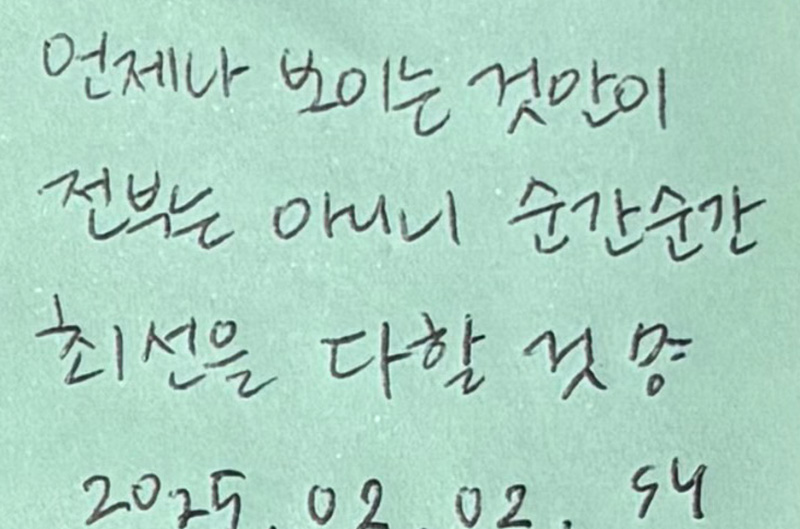 언제나 보이는 것만이
전부는 아니니 순간순간
최선을 다할 것
2025. 02. 02. SY